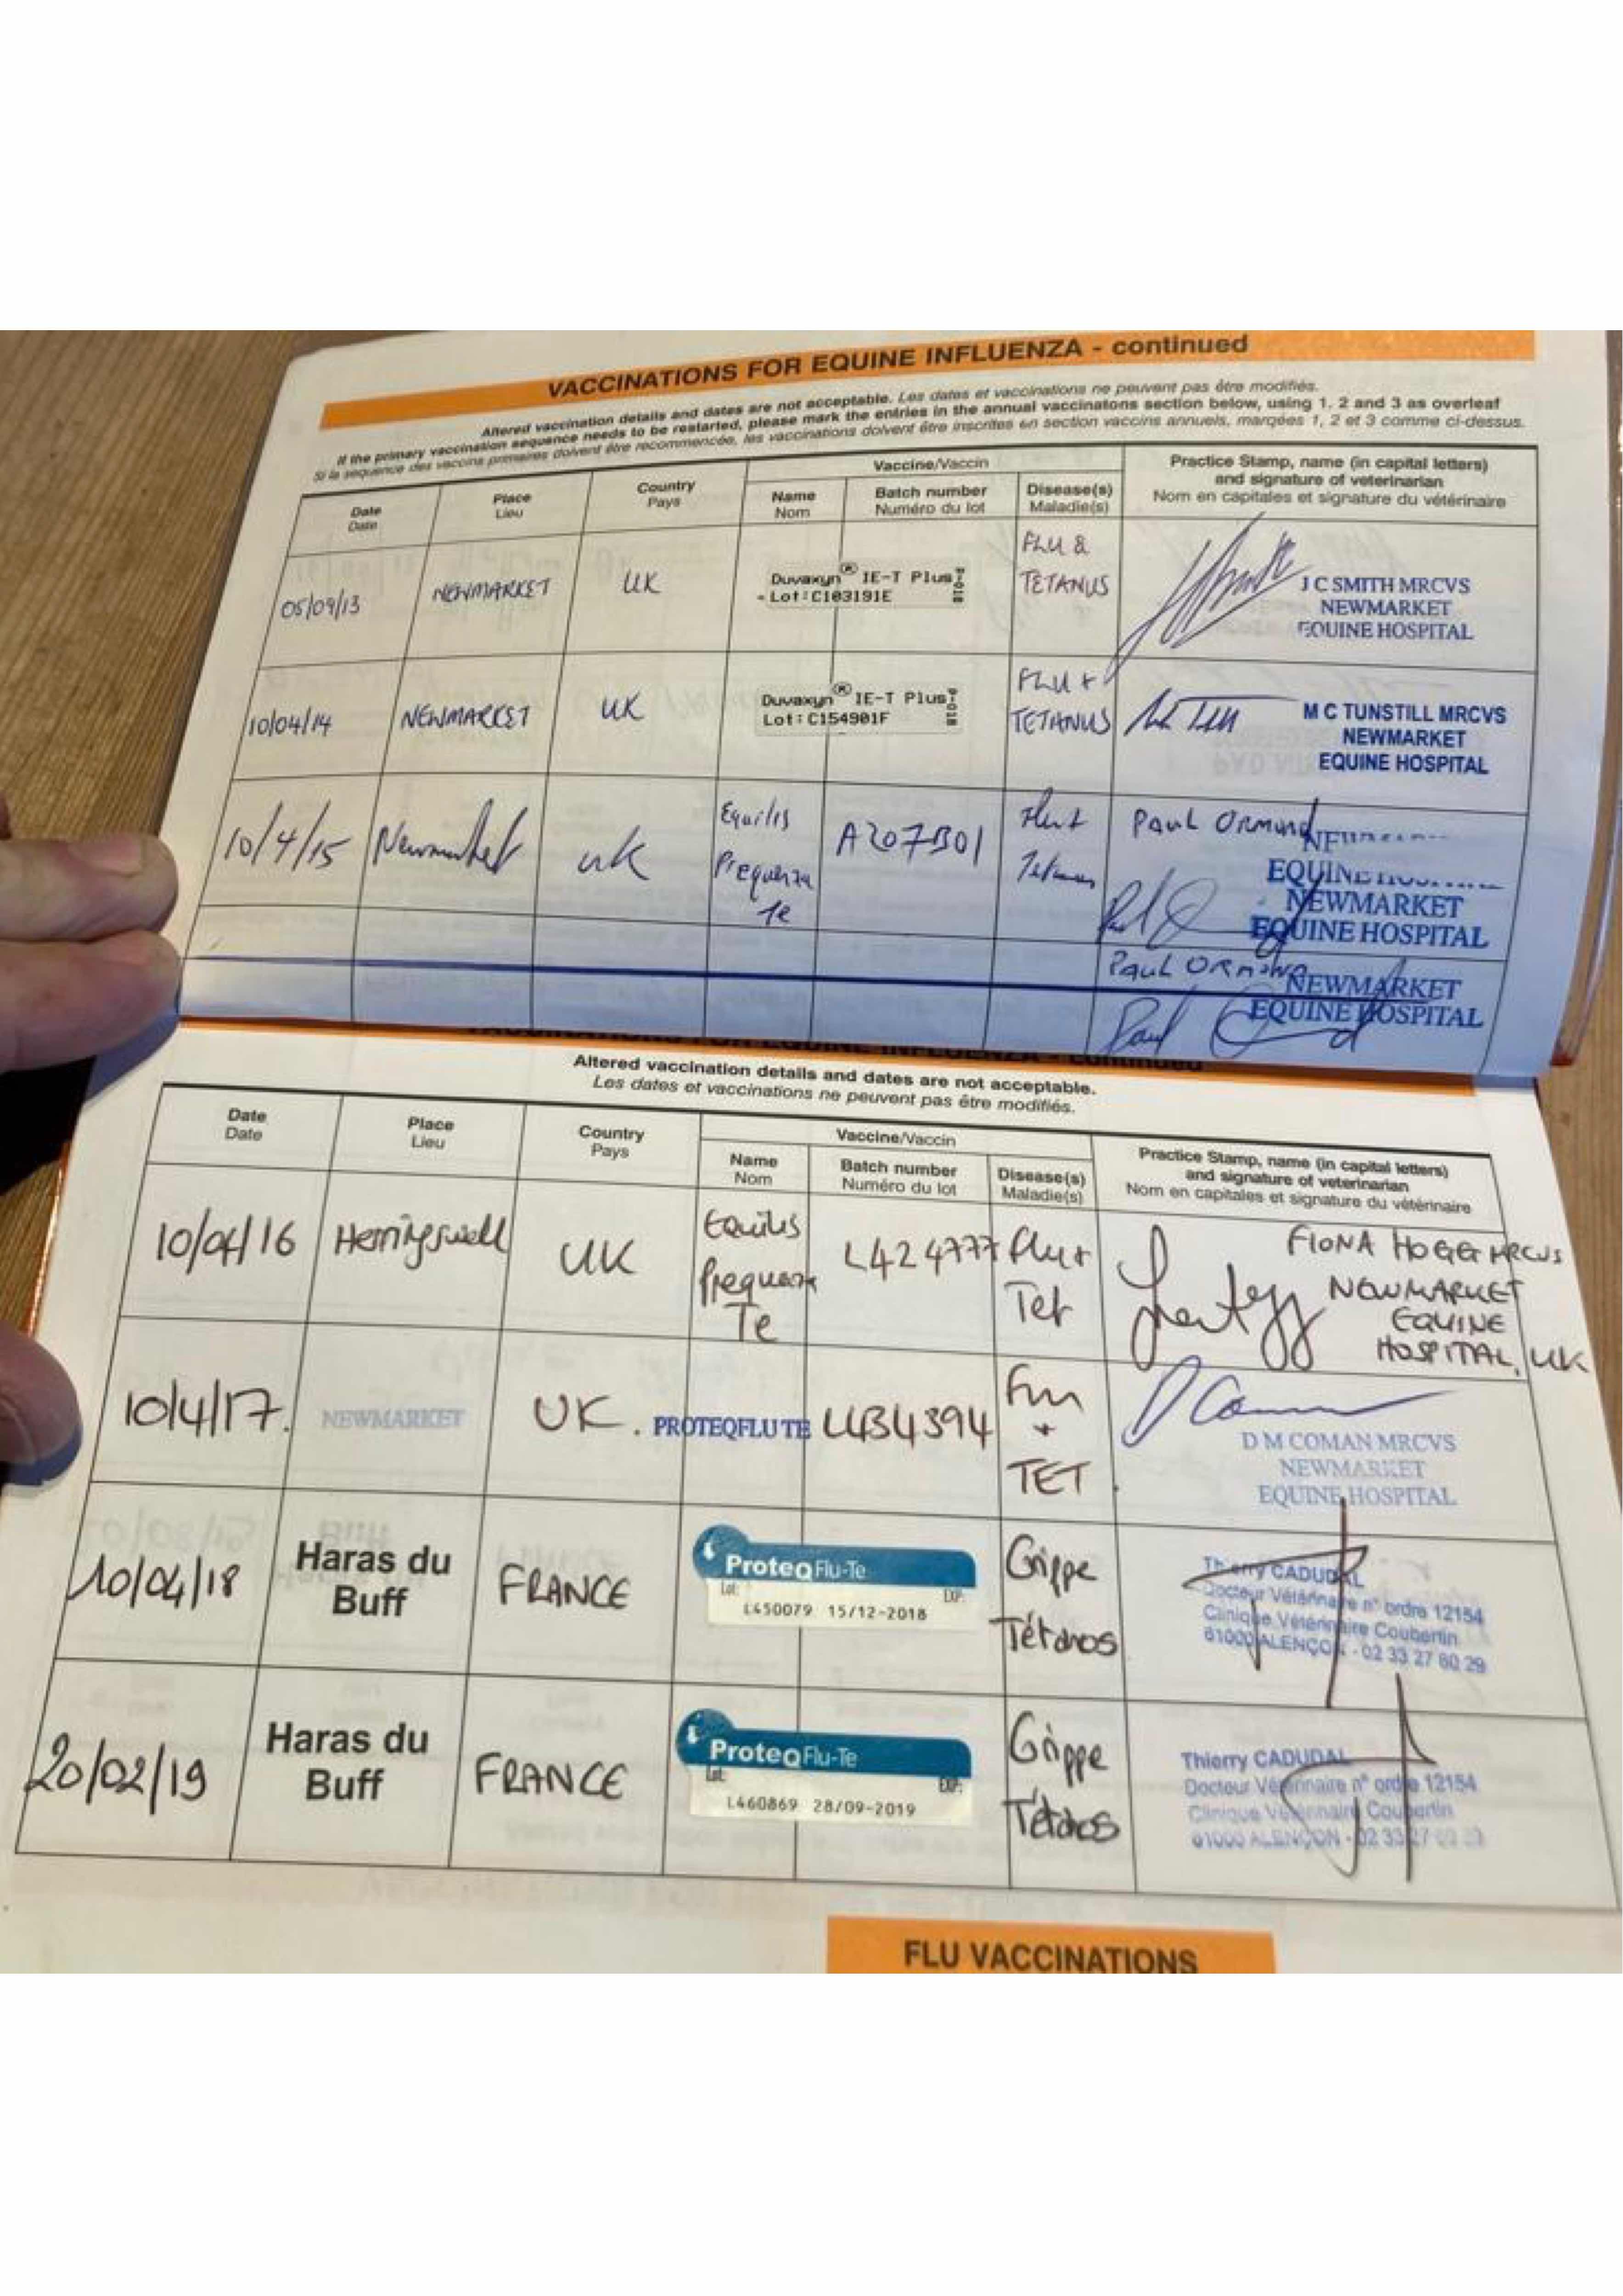 VACCINATIONS FOR EQUINE INFLUENZA - continued
Altered vaccination details and dates are not acceptable. Les dates et vaccinations ne peuvent pas être modifiés.
If the primary vaccination sequence needs to be restarted, please mark the entries in the annual vaccinatons section below, using 1, 2 and 3 as overleaf
Si la sequence des vaccins primaires doivent être recommencée, les vaccinations doivent être inscrites en section vaccins annuels, marqées 1, 2 et 3 comme ci-dessus.
Vaccine/Vaccin
Date
Date
Place
Lieu
Country
Pays
Name
Nom
Batch number
Numéro du lot
Disease(s)
Maladie(s)
Practice Stamp, name (in capital letters)
and signature of veterinarian
Nom en capitales et signature du vétérinaire
05/09/13
NEWMARKET
UK
Duvaxyn® IE-T Plus
Lot:C103191E
FLU &
TETANUS
J C SMITH MRCVS
NEWMARKET
EQUINE HOSPITAL
10/04/14
NEWMARKET
UK
Duvaxyn® IE-T Plus
Lot:C154901F
FLU +
TETANUS
M C TUNSTILL MRCVS
NEWMARKET
EQUINE HOSPITAL
10/4/15
Newmarket
UK
Equilis
Prequenza
Te
A207B01
Flu +
Tetanus
PAUL ORMOND
EQUINE
NEWMARKET
EQUINE HOSPITAL
PAUL ORMOND
NEWMARKET
EQUINE HOSPITAL
Altered vaccination details and dates are not acceptable.
Les dates et vaccinations ne peuvent pas être modifiés.
Date
Date
Place
Lieu
Country
Pays
Vaccine/Vaccin
Name
Nom
Batch number
Numéro du lot
Disease(s)
Maladie(s)
Practice Stamp, name (in capital letters)
and signature of veterinarian
Nom en capitales et signature du vétérinaire
10/04/16
Herringswell
UK
Equilis
Prequenza
Te
L424777
flu +
Tet
FIONA HOGG MRCVS
NEWMARKET
EQUINE
HOSPITAL, UK
10/4/17.
NEWMARKET
UK.
PROTEQFLU TE
L434394
Flu
+
TET
D M COMAN MRCVS
NEWMARKET
EQUINE HOSPITAL
10/04/18
Haras du
Buff
FRANCE
ProteqFlu-Te
Lot: EXP:
L450079 15/12-2018
Grippe
Tétanos
Thierry CADUDAL
Docteur Vétérinaire n° ordre 12154
Clinique Vétérinaire Coubertin
61000 ALENÇON - 02 33 27 60 29
20/02/19
Haras du
Buff
FRANCE
ProteqFlu-Te
Lot: EXP:
L460869 28/09-2019
Grippe
Tétanos
Thierry CADUDAL
Docteur Vétérinaire n° ordre 12154
Clinique Vétérinaire Coubertin
61000 ALENÇON - 02 33 27
FLU VACCINATIONS